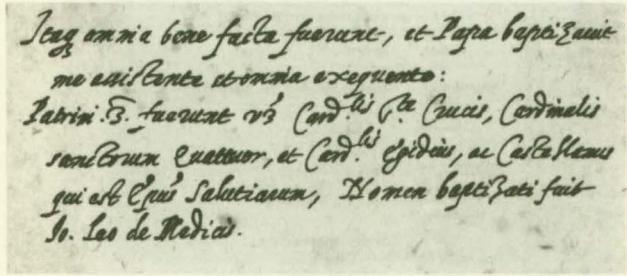 Itaq; omnia bene facta fuerunt, et Papa baptizavit
me assistente et omnia exequente:
Patrini .3. fuerunt vz Card.lis S.te Crucis, Cardinalis
sanctorum Quattuor, et Card.lis Egidius, ac Castellanus
qui est Epus Salutiarum, Nomen baptizati fuit
Jo. Leo de Medicis.